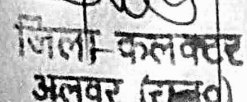 जिला-कलक्टर
अलवर (राज०)